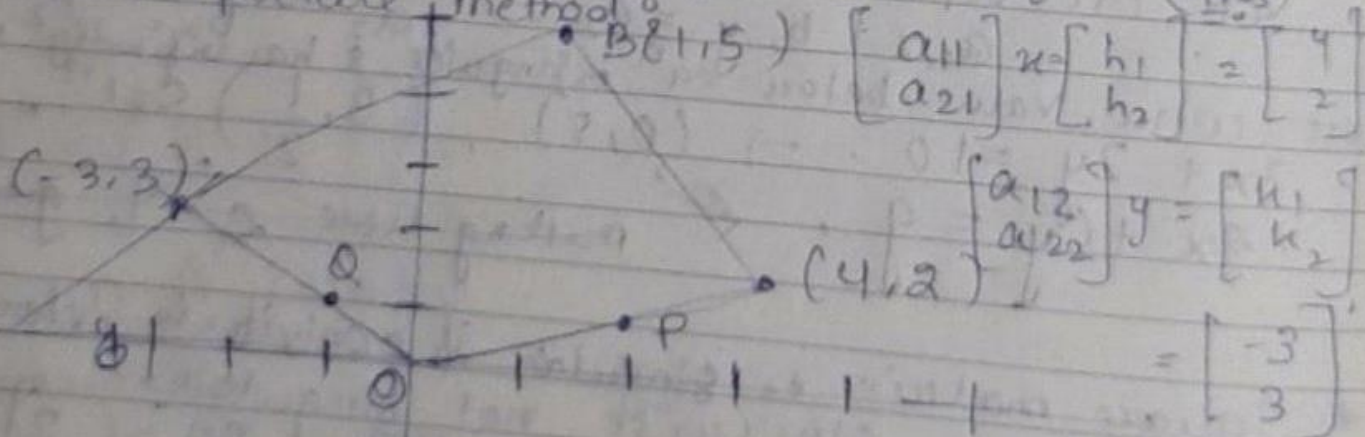 method
B(1,5) [a11 a21] x = [h1 h2] = [4 2]
(-3,3)
[a12 a22] y = [k1 k2]
Q
(4,2)
P
= [-3 3]
O